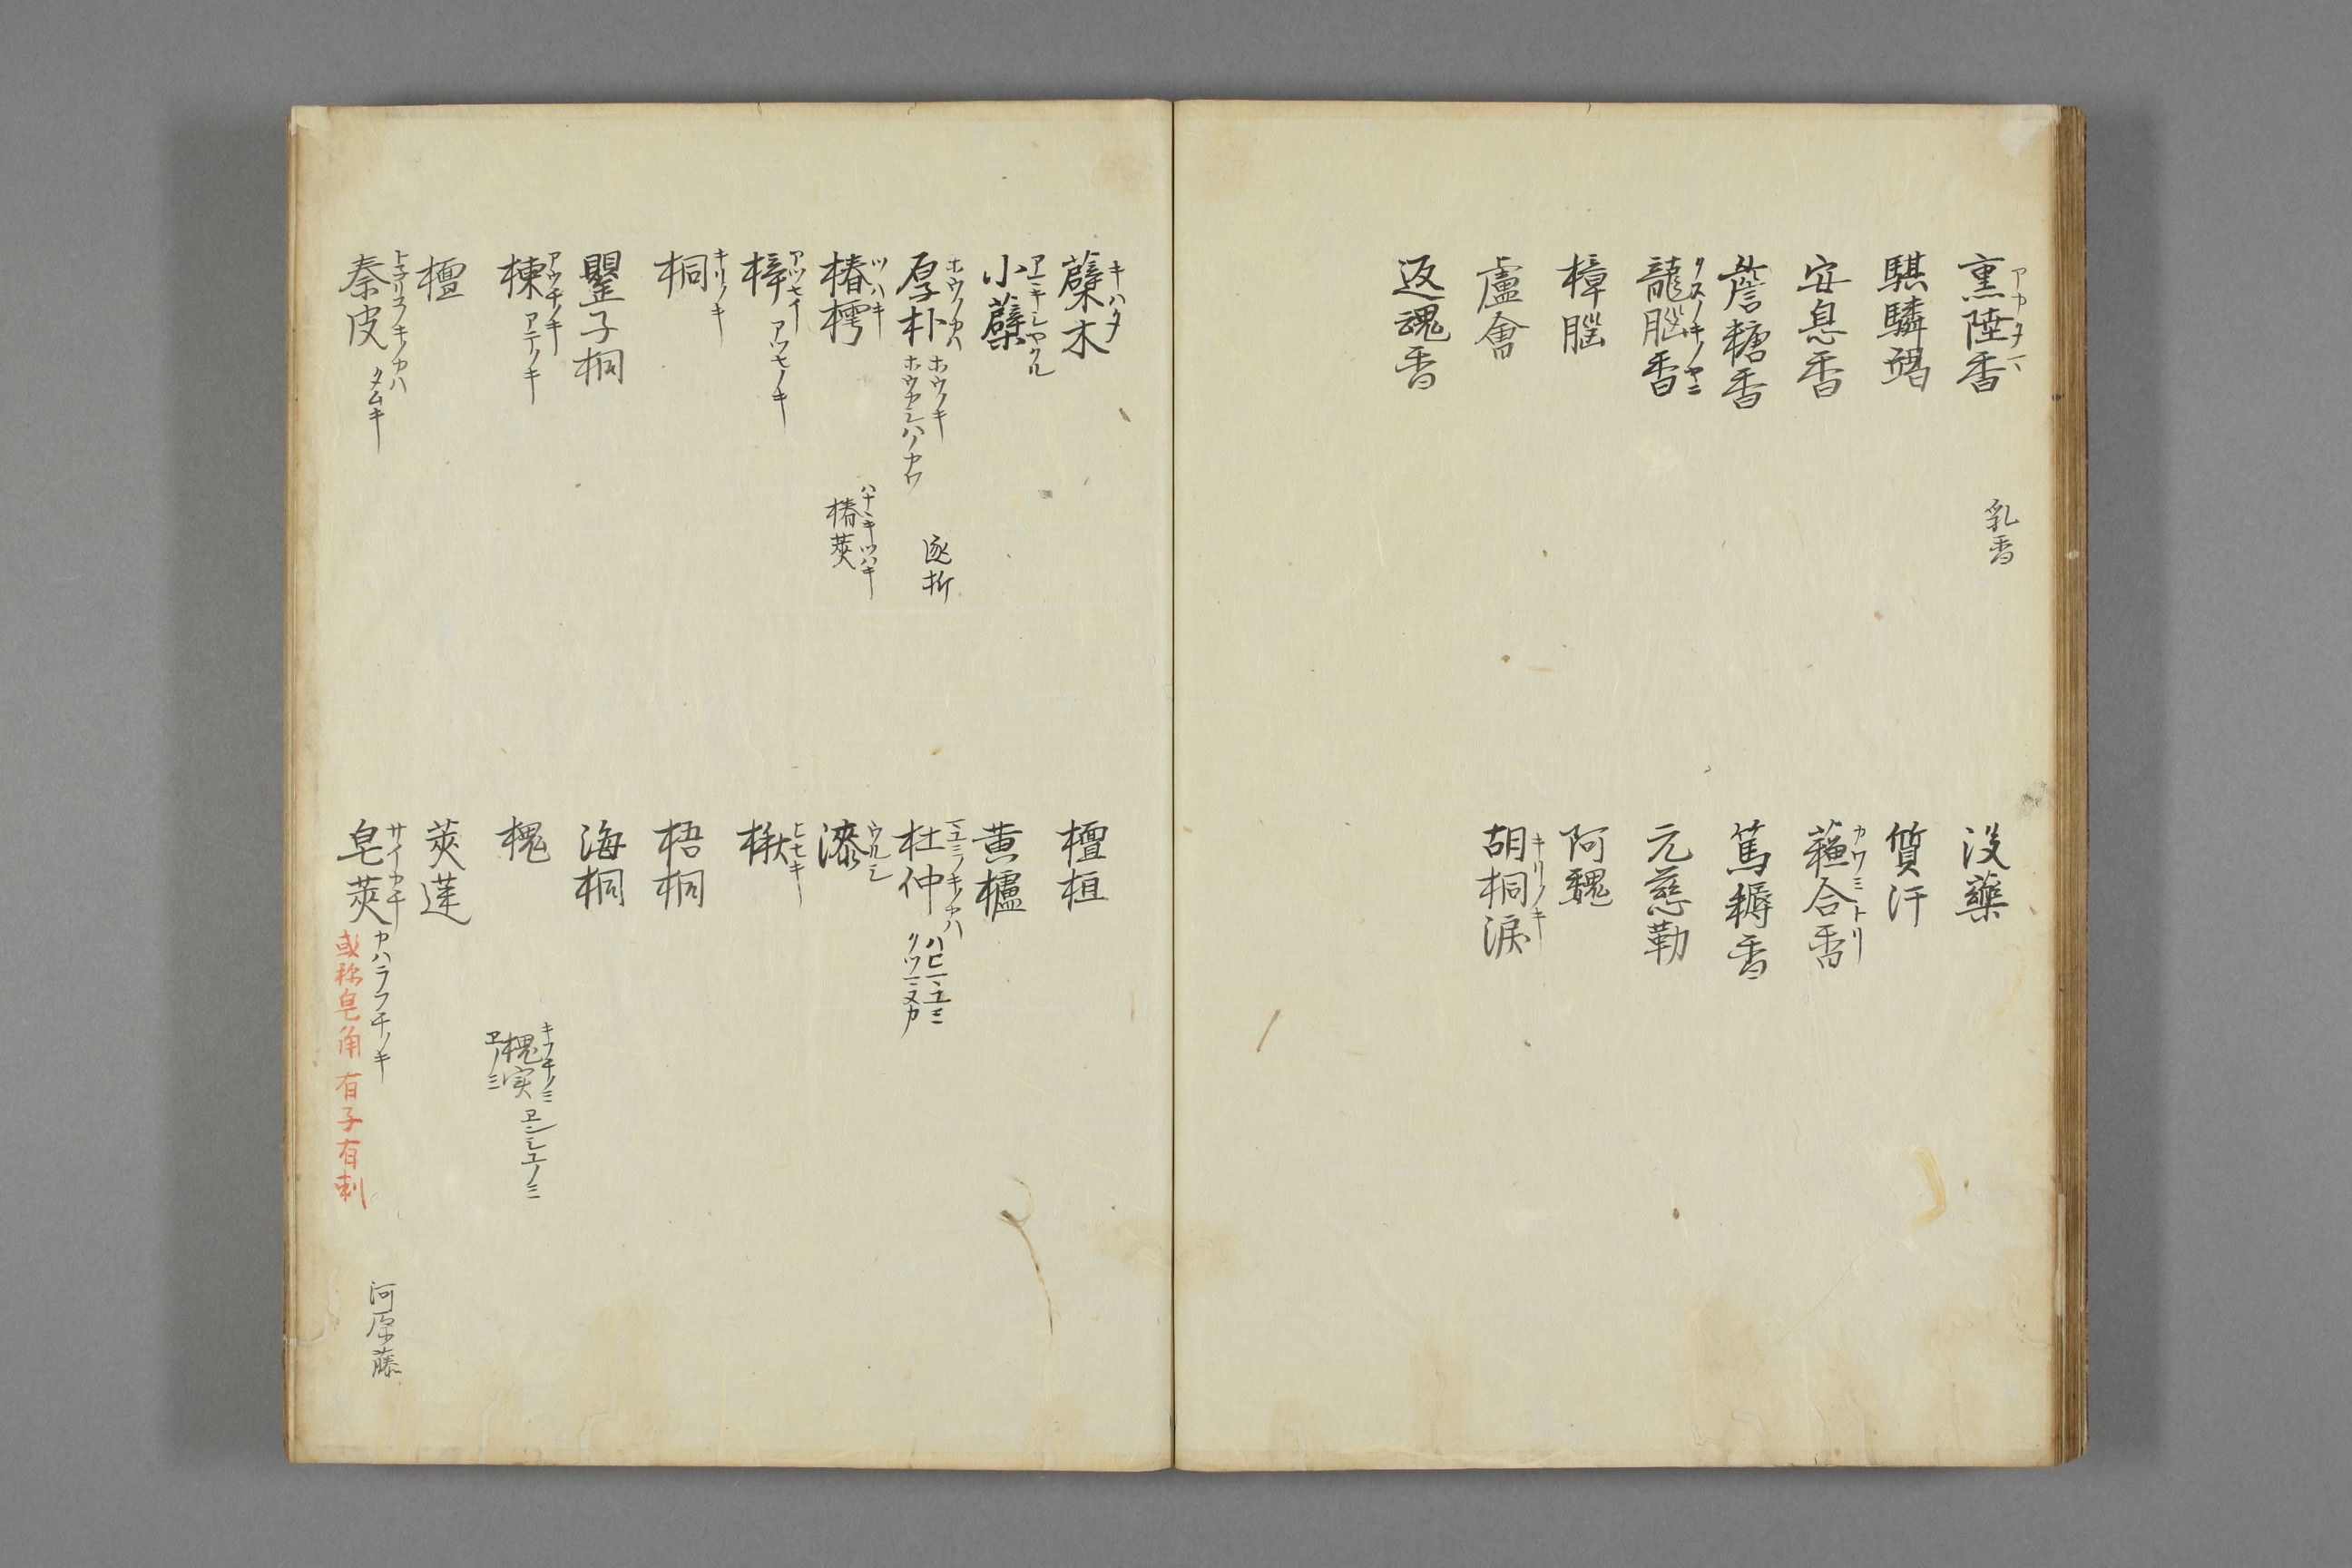 薫陸香 アカタマ 乳香
騏驎竭
安息香
詹糖香
龍腦香 クスノキノヤニ
樟腦
盧會
返魂香
没藥
質汗
蘓合香 カワミトリ
篤耨香
元慈勒
阿魏
胡桐淚 キリノキ
蘗木 キハタ
小蘗
厚朴 ホウノカハ ホウノキ ホウカシハノカワ 逐折
椿樗 ツハキ 椿莢 ハナキツハキ
梓 アツセイ アツセノキ
桐 キリノキ
罌子桐
楝 アウチノキ アテノキ
檀
秦皮 トネリコノキノカハ タムキ
檀桓
黄櫨
杜仲 マユミノキノカハ ハヒマユミ
漆 ウルシ
楸 ヒセキ
梧桐
海桐
槐 槐実 キフチノミ ヱンシユノミ ヱノミ
莢蒾
皂莢 サイカチ カハラフチノキ 河原藤
或称皂角 有子有刺